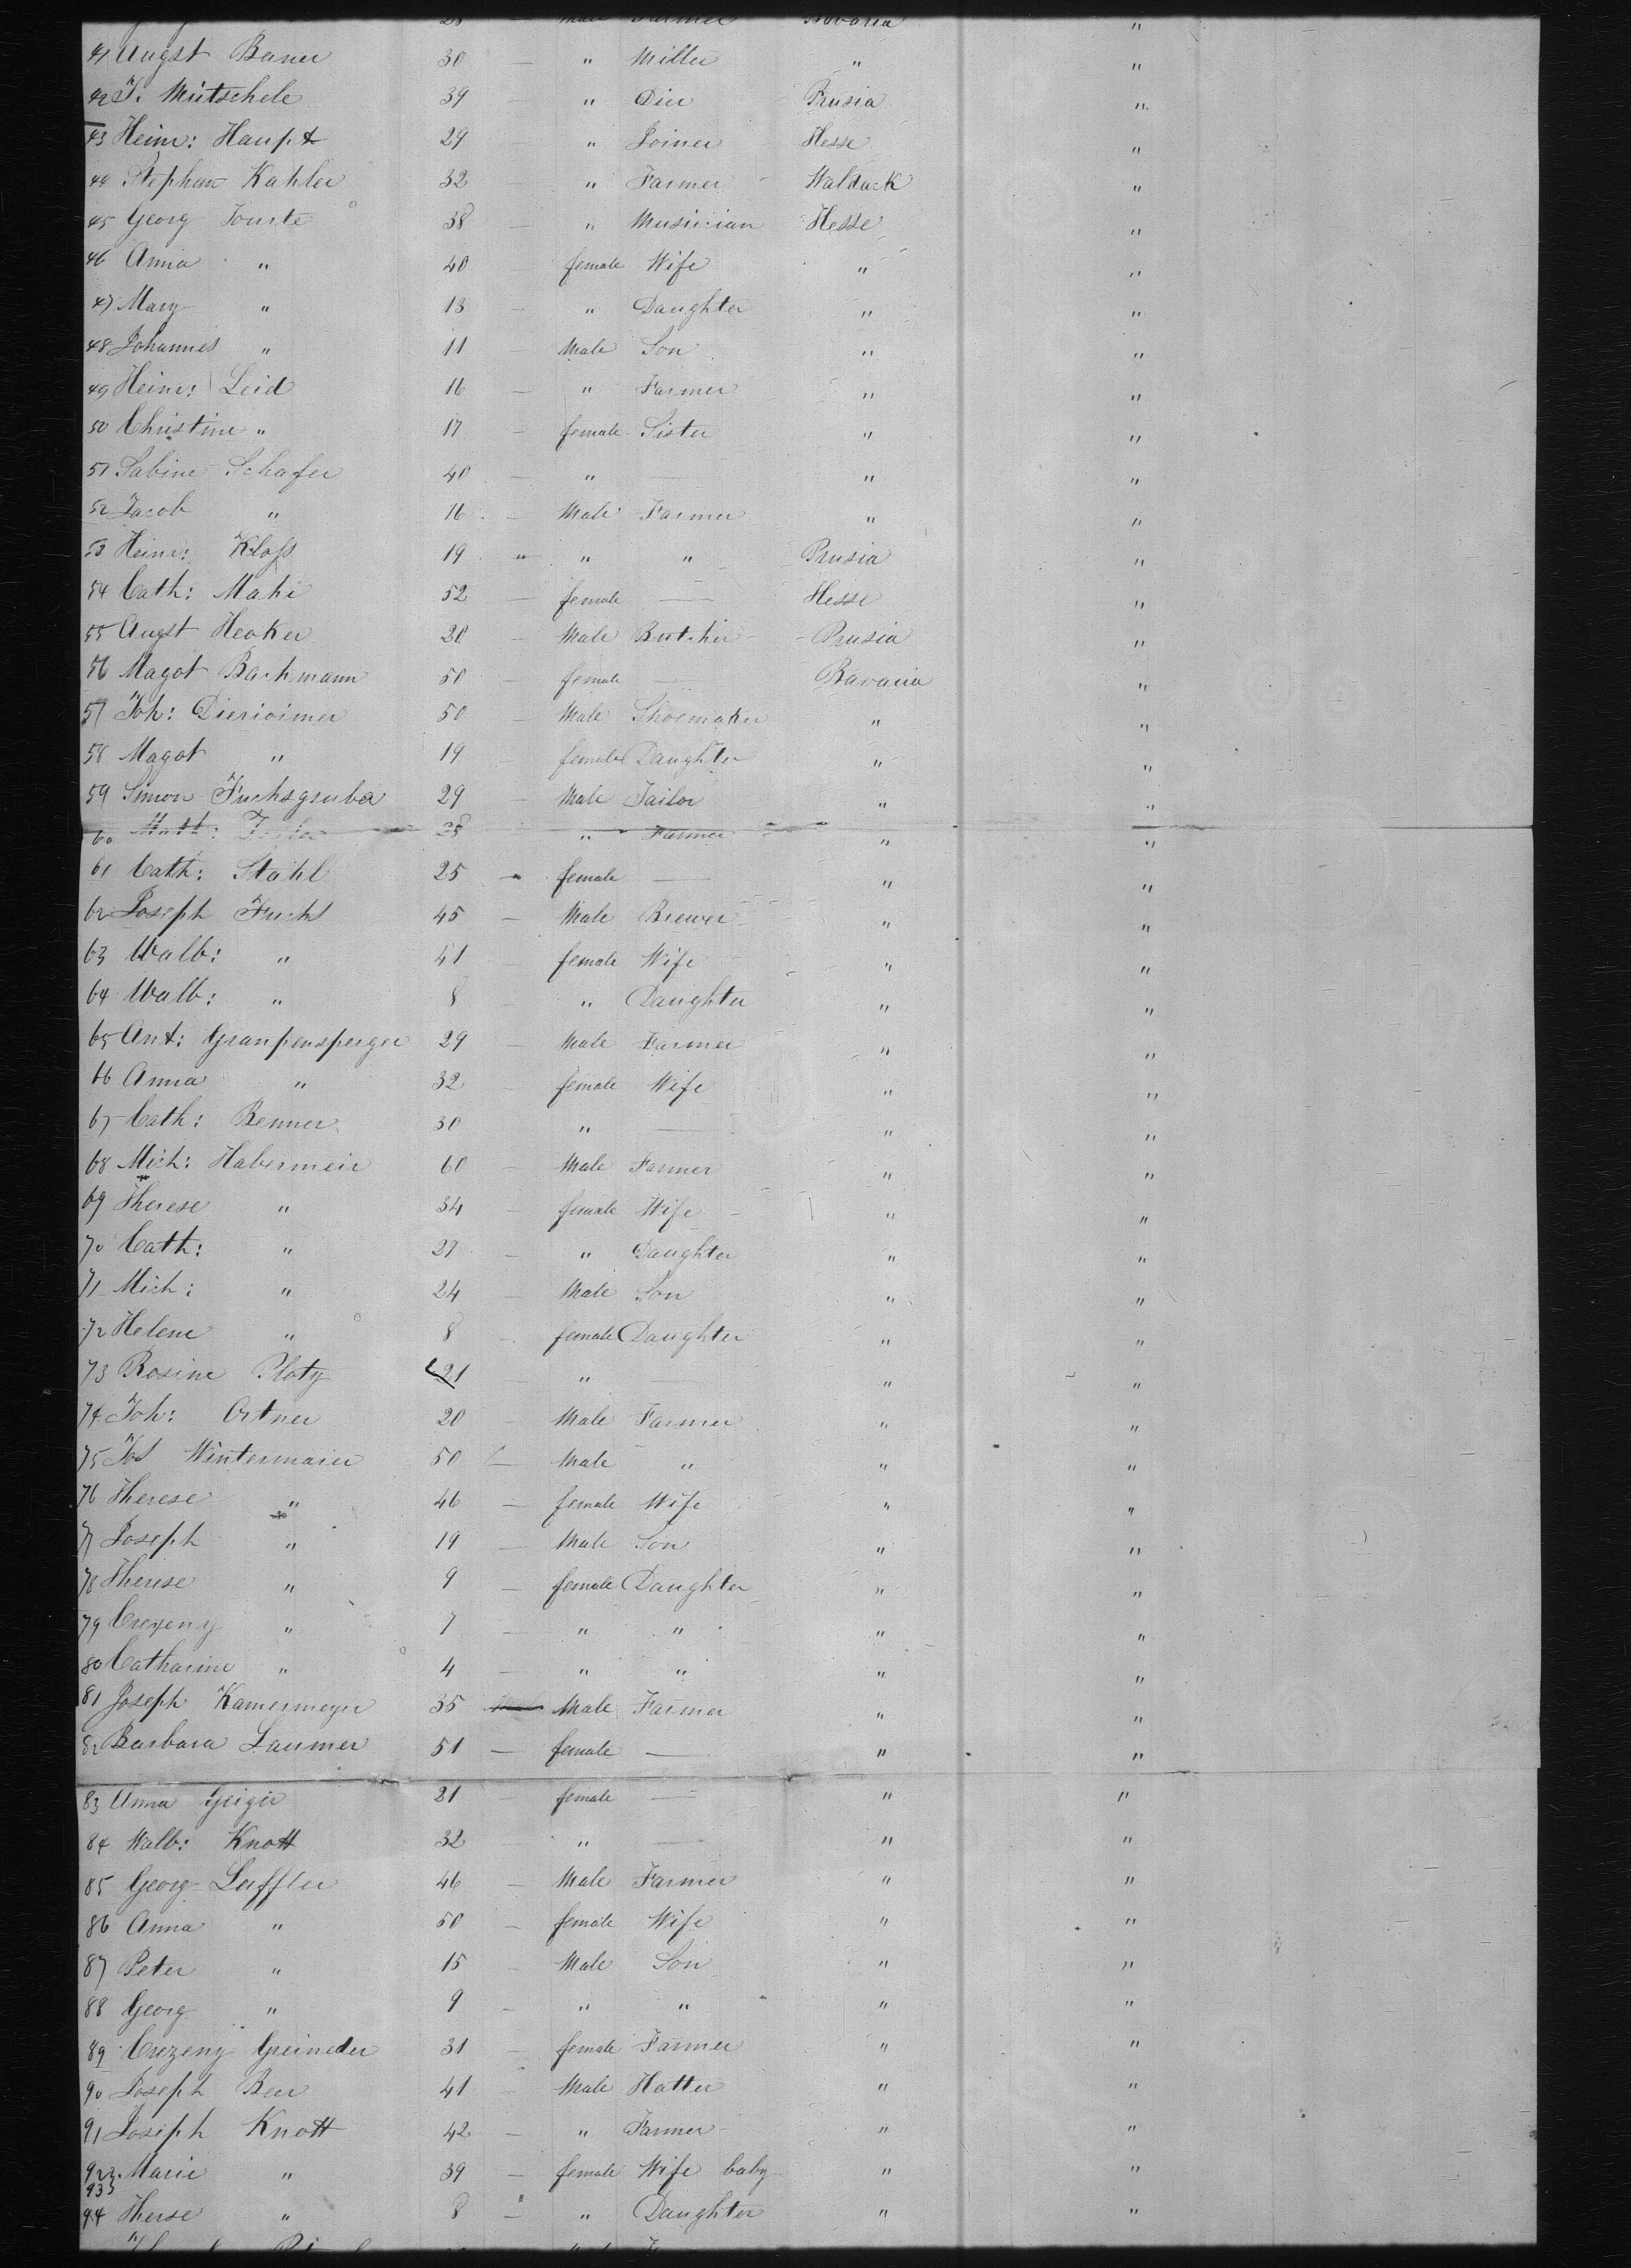 28 — Male Farmer Bavaria "
41 Augst Baner 30 — " Miller " "
42 J. Mütschele 39 — " Dier Prusia "
43 Heinr: Haupt 29 " Joiner Hesse "
44 Stephan Kahler 32 — " Farmer Waldack "
45 Georg 38 — " Musician Hesse "
46 Anna " 40 female Wife " "
47 Mary " 13 — " Daughter " "
48 Johannes " 11 — Male Son " "
49 Heinr: Leid 16 — " Farmer " "
50 Christine " 17 — female Sister " "
51 Sabine Schafer 40 — " — " "
52 Jacob " 16 — Male Farmer " "
53 Heinr: Kloss 19 " " " Prusia "
54 Cath: Mahi 52 — female — Hesse "
55 Augst Heoker 20 — Male Butcher Prusia "
56 Magot Bachmann 50 — female — Bavaria "
57 Joh: 50 — Male Shoemaker " "
58 Magot " 19 — female Daughter " "
59 Simon Fuchsgruber 29 — Male Tailor " "
60 28 " Farmer " "
61 Cath: Stahl 25 — female — " "
62 Joseph Fuchs 45 — Male Brewer " "
63 Walb: " 41 female Wife " "
64 Walb: " 8 — " Daughter " "
65 Ant: Granpensperger 29 — Male Farmer " "
66 Anna " 32 — female Wife " "
67 Cath: Benner 30 " — " "
68 Mich: Habermeir 60 — Male Farmer " "
69 Therese " 34 — female Wife " "
70 Cath: " 27 — " Daughter " "
71 Mich: " 24 — Male Son " "
72 Helene " 8 — female Daughter " "
73 Rosine Ploty 21 — " — " "
74 Joh: Ortner 20 — Male Farmer " "
75 Jos Wintermaier 50 — Male " " "
76 Therese " 46 — female Wife " "
77 Joseph " 19 — Male Son " "
78 Therese " 9 — female Daughter " "
79 Crezeny " 7 — " " " "
80 Catharine " 4 — " " " "
81 Joseph Kamermeyer 35 Male Farmer " "
82 Barbara Laumer 51 — female — " "
83 Anna Geiger 21 — female — " "
84 Walb: Knott 32 " — " "
85 Georg Leffler 46 — Male Farmer " "
86 Anna " 50 — female Wife " "
87 Peter " 15 — Male Son " "
88 Georg " 9 — " " " "
89 Crezeny Greineder 31 — female Farmer " "
90 Joseph Beer 41 — Male Hatter " "
91 Joseph Knott 42 — " Farmer " "
92 Marie " 39 — female Wife baby " "
93
94 Therse " 8 — " Daughter " "